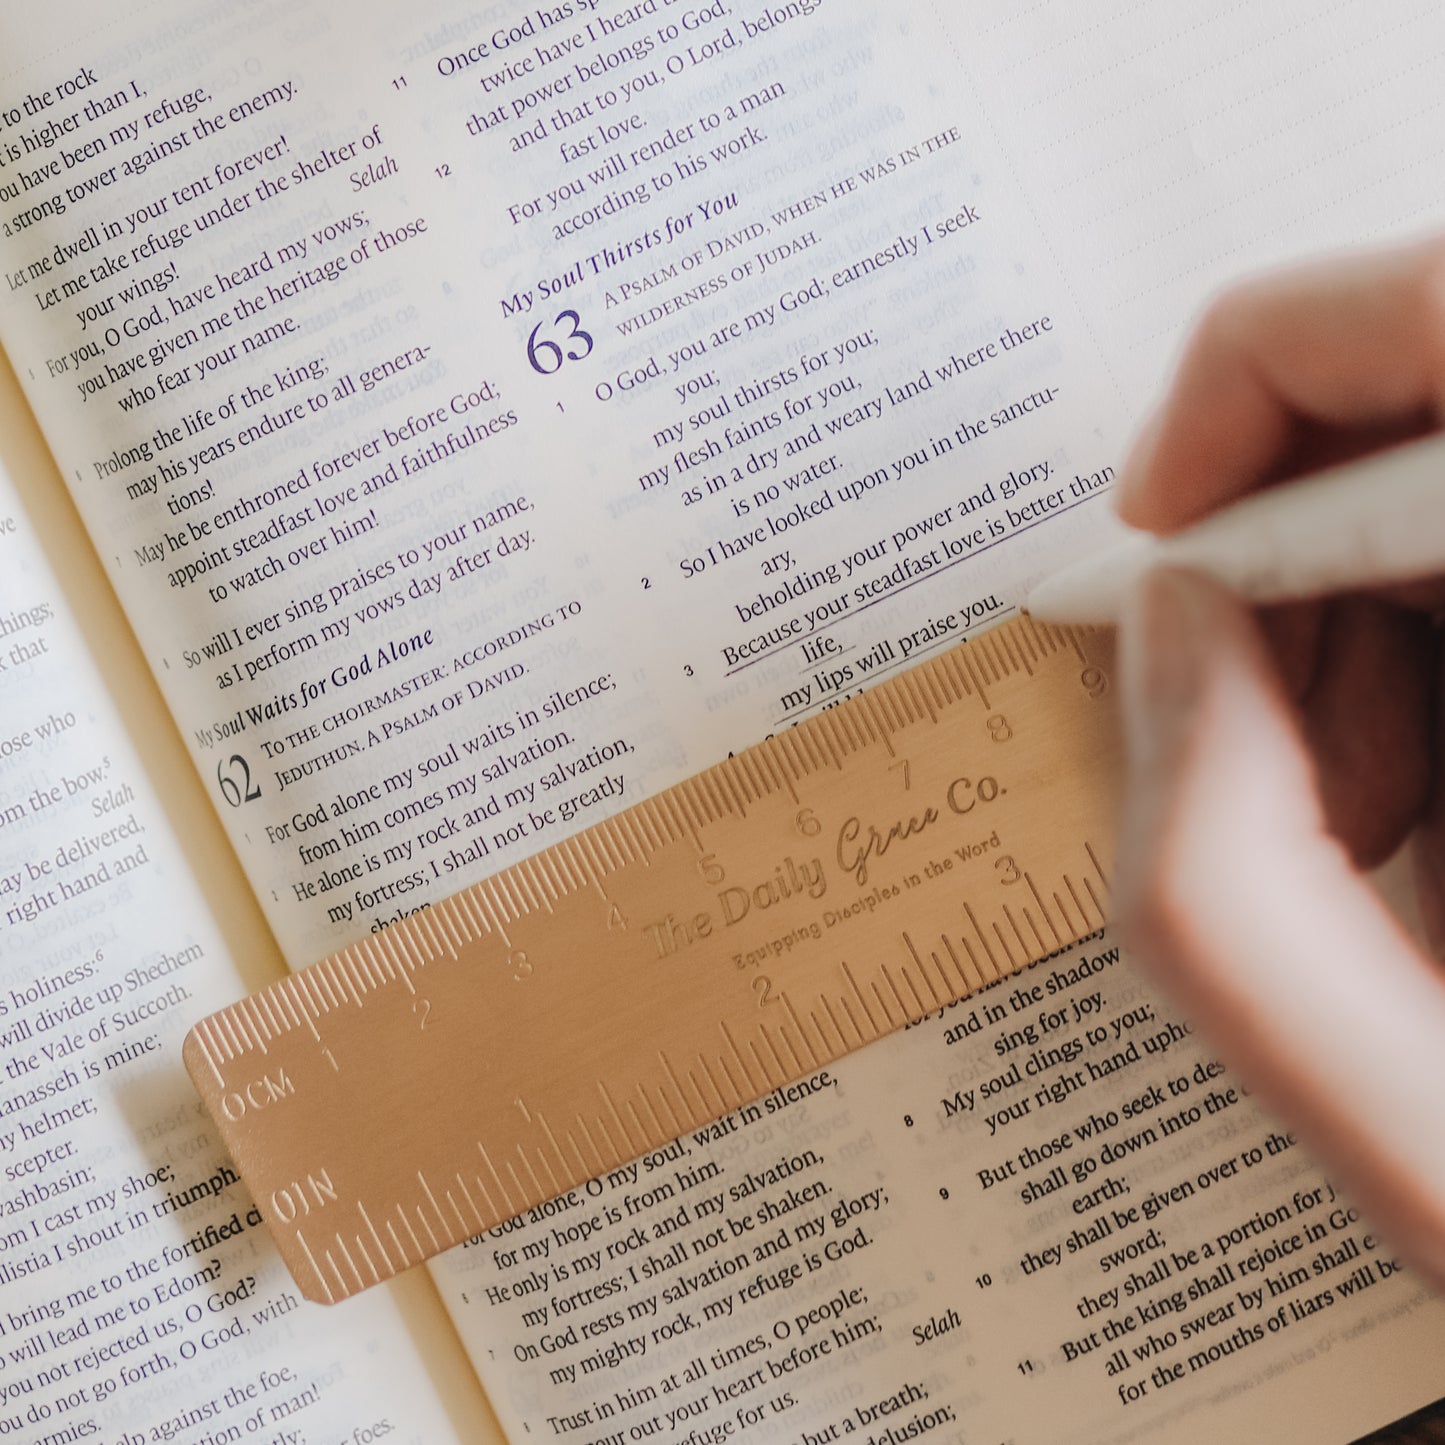 to the rock
is higher than I,
you have been my refuge,
a strong tower against the enemy.
Let me dwell in your tent forever!
Let me take refuge under the shelter of
your wings! Selah
5 For you, O God, have heard my vows;
you have given me the heritage of those
who fear your name.
6 Prolong the life of the king;
may his years endure to all genera-
tions!
7 May he be enthroned forever before God;
appoint steadfast love and faithfulness
to watch over him!
8 So will I ever sing praises to your name,
as I perform my vows day after day.
My Soul Waits for God Alone
62 TO THE CHOIRMASTER: ACCORDING TO
JEDUTHUN. A PSALM OF DAVID.
1 For God alone my soul waits in silence;
from him comes my salvation.
2 He alone is my rock and my salvation,
my fortress; I shall not be greatly
shaken.
For God alone, O my soul, wait in silence,
for my hope is from him.
6 He only is my rock and my salvation,
my fortress; I shall not be shaken.
7 On God rests my salvation and my glory;
my mighty rock, my refuge is God.
8 Trust in him at all times, O people;
pour out your heart before him;
refuge for us. Selah
but a breath;
delusion;
11 Once God has
twice have I heard
that power belongs to God,
and that to you, O Lord, belongs
fast love.
12 For you will render to a man
according to his work.
My Soul Thirsts for You
63 A PSALM OF DAVID, WHEN HE WAS IN THE
WILDERNESS OF JUDAH.
1 O God, you are my God; earnestly I seek
you;
my soul thirsts for you;
my flesh faints for you,
as in a dry and weary land where there
is no water.
2 So I have looked upon you in the sanctu-
ary,
beholding your power and glory.
3 Because your steadfast love is better than
life,
my lips will praise you.
and in the shadow
sing for joy.
8 My soul clings to you;
your right hand
9 But those who seek to
shall go down into the
earth;
10 they shall be given over to the
sword;
they shall be a portion for
11 But the king shall rejoice in
all who swear by him shall
for the mouths of liars will be
things;
that
those who
from the bow.5
Selah
may be delivered,
right hand and
holiness:6
will divide up Shechem
the Vale of Succoth.
Manasseh is mine;
my helmet;
scepter.
washbasin;
I cast my shoe;
I shout in triumph.
bring me to the fortified
will lead me to Edom?
you not rejected us, O God?
you do not go forth, O God, with
armies.
help against the foe,
of man!
foes.
0 CM 1 2 3 4 5 6 7 8 9
The Daily Grace Co.
Equipping Disciples in the Word
0 IN 2 3